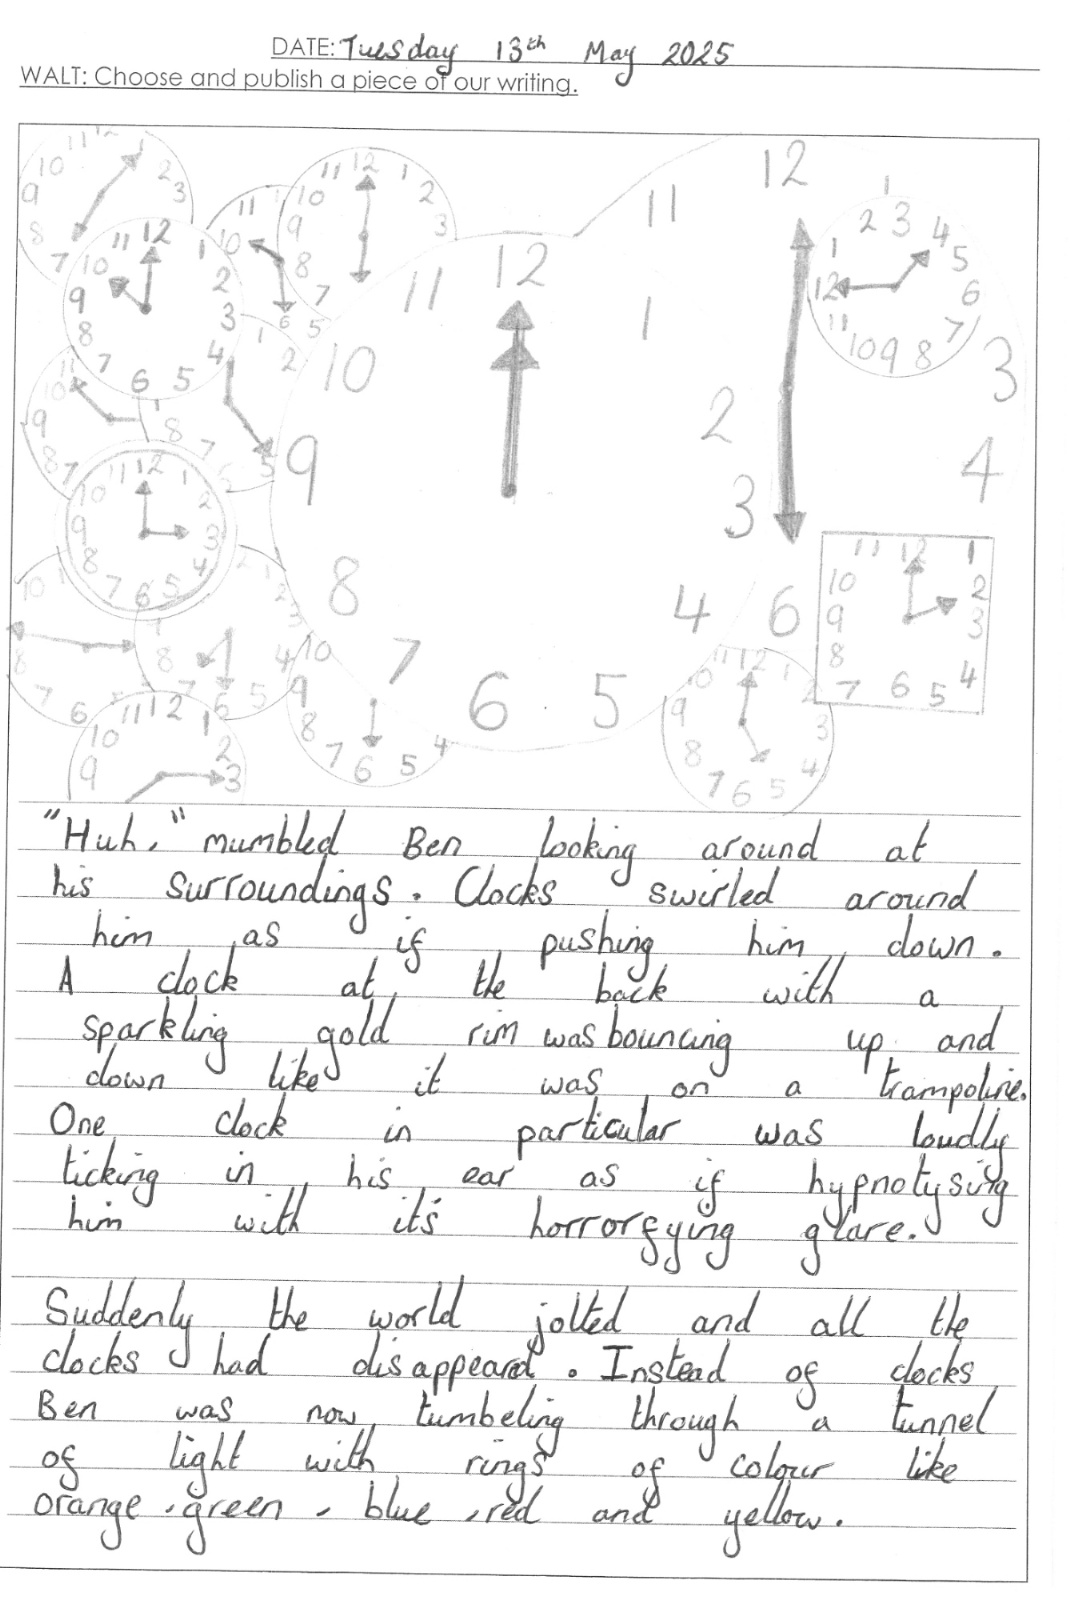 DATE: Tuesday 13th May 2025
WALT: Choose and publish a piece of our writing.
"Huh," mumbled Ben looking around at
his surroundings. Clocks swirled around
him as if pushing him down.
A clock at the back with a
sparkling gold rim was bouncing up and
down like it was on a trampoline.
One clock in particular was loudly
ticking in his ear as if hypnotysing
him with it's horrorfying glare.
Suddenly the world jolted and all the
clocks had disappeared. Instead of clocks
Ben was now tumbeling through a tunnel
of light with rings of colour like
orange, green, blue, red and yellow.